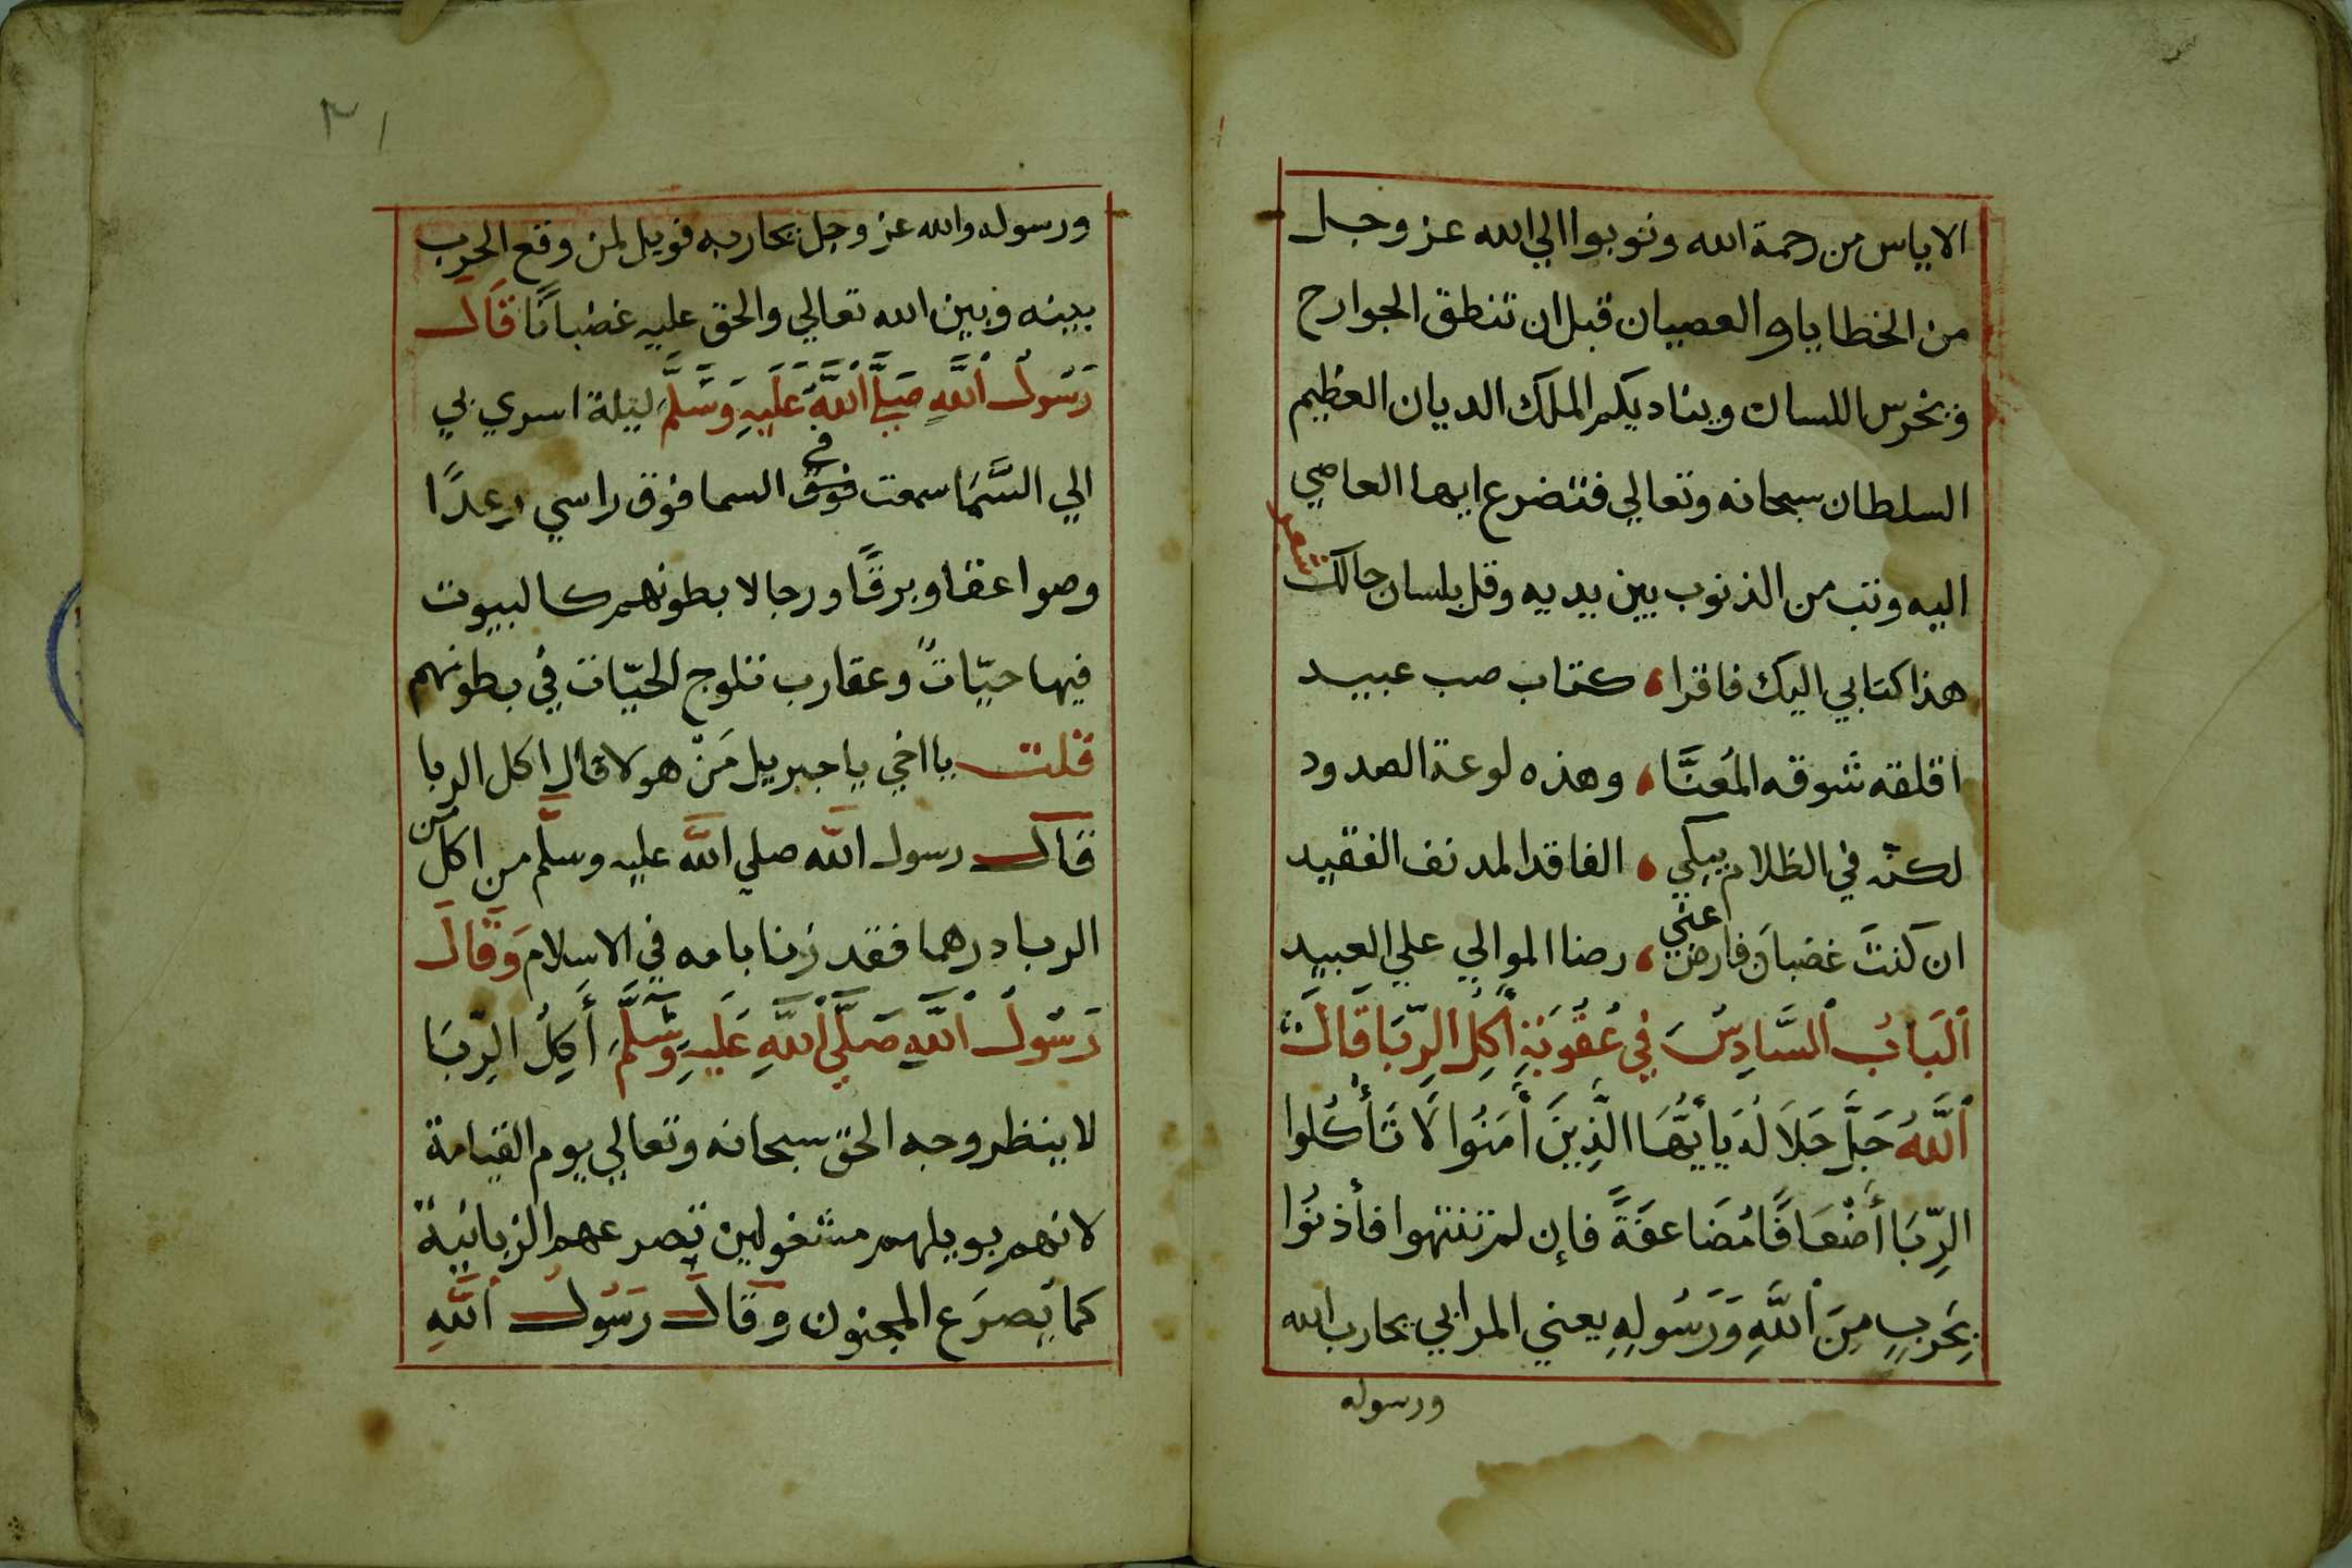 الاياس من رحمة الله وتوبوا الي الله عز وجل
من الخطايا والعصيان قبل ان تنطق الجوارح
وتخرس اللسان ويناديكم الملك الديان العظيم
السلطان سبحانه وتعالي فتضرع ايها العاصي
اليه وتب من الذنوب بين يديه وقل بلسان حالك شعر
هذا كتابي اليك فاقرا، كتاب صب عبيد
اقلقه شوقه المُعَنَّا، وهذه لوعة الصدود
لكنّه في الظلام يبكي، الفاقد المدنف الفقيد
ان كنتَ غضبانَ فارض عني، رضا الموالي علي العبيدِ
اَلبَابُ السَّادِسُ في عُقُوبَةِ أكِلِ الرِّبَا قَالَ
اَللَّهُ جَلَّ جَلَالُهُ يَا أيُّهَا الَّذِينَ أَمَنُوا لَا تَأْكُلوا
الرِّبَا أَضْعَافًا مُضَاعفَةً فإن لم تنتهوا فأذنُوا
بِحَربٍ مِنَ اللَّهِ وَرَسُولِهِ يعني المرابي يحارب الله
ورسوله
٢١
ورسوله والله عز وجل يحاربه فويل لمن وقع الحرب
بينه وبين الله تعالي والحق عليه غضبانًا قَالَ
رَسُولُ اللَّهِ صَلَّي اللَّهُ عَلَيهِ وَسَلَّمَ ليلة اسري بي
الي السَّمَا سمعت فوق في السما فوق راسي رعدًا
وصواعقا وبرقًا ورجالا بطونهم كالبيوت
فيها حيّاتً وعقارب تلوج الحيّات في بطونهم
قلت يا اخي يا جبريل مَنْ هولا قال اكل الربا
قَالَ رسول اللَّه صلي اللَّه عليه وسلَّم من اكل من
الربا درهما فقد زنا بامه في الاسلام وَقَالَ
رَسُولُ اللَّهِ صَلَّي اللَّهِ عَلَيهِ وَسَلَّمَ أَكِلُ الرِّبَا
لا ينظر وجه الحق سبحانه وتعالي يوم القيامة
لانهم بويلهم مشغولين تصرعهم الزبانية
كما يُصرَع المجنون وَقَالَ رَسُولُ اللَّهِ